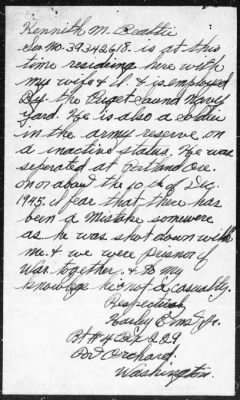 Kennith M. Beattie
Ser No. 39342618. is at this
time residing here with
my wife & I. & is employed
By the Puget Sound Navy
Yard. He is also a soldier
in the army reserve, on
a inactive status. He was
seperated at Portland Ore.
on or about the 10th of Dec.
1945. I fear that there has
been a mistake somewere
as he was shot down with
me. & we were prisnor of
war together. & To my
knowlege he is not a casualty.
Respectively
Harley E.
Rt #4 Bx 229
Port Orchard.
Washington.